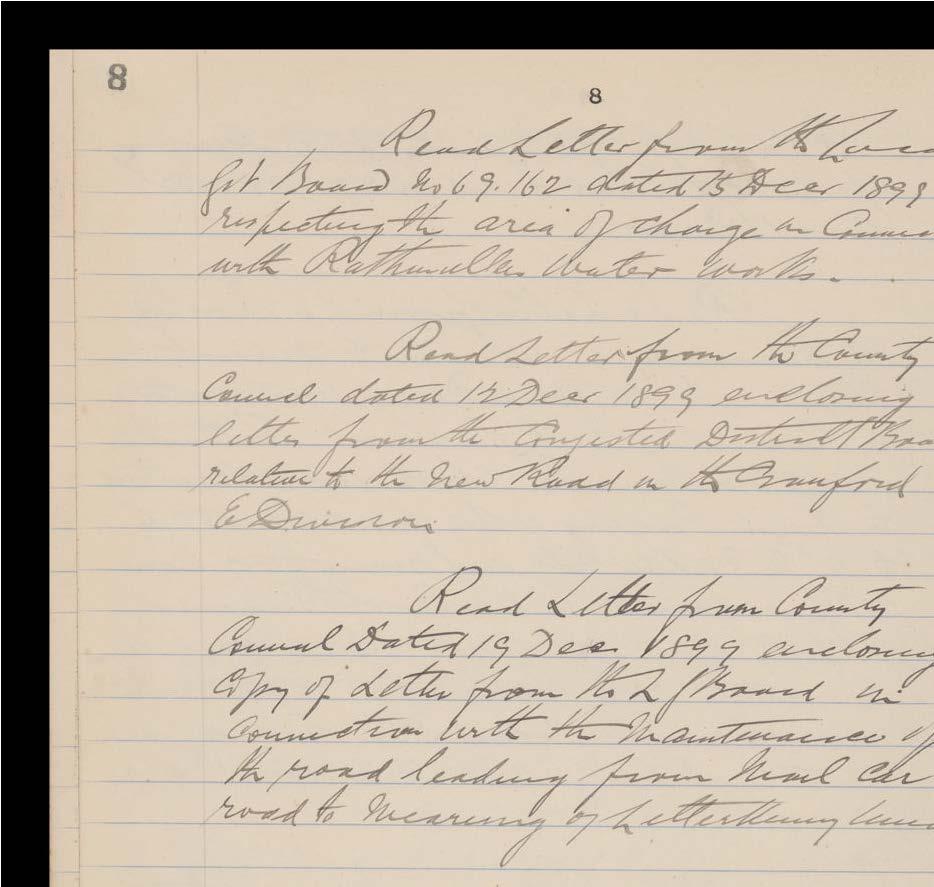 8
8
Read Letter from the Loca
Gvt Board No 69.162 dated 15 Decr 1899
respecting the area of charge in Connec
with Rathmullen Water works.
Read Letter from the County
Council dated 12 Decr 1899 enclosing
letter from the Congested District Boa
relative to the New Road in the Cranford
E Division
Read Letter from County
Council Dated 19 Dec 1899 enclosing
Copy of Letter from the L G Board in
Connection with the Maintenance of
the road leading from Mail Car
road to Mearing of Letterkenny